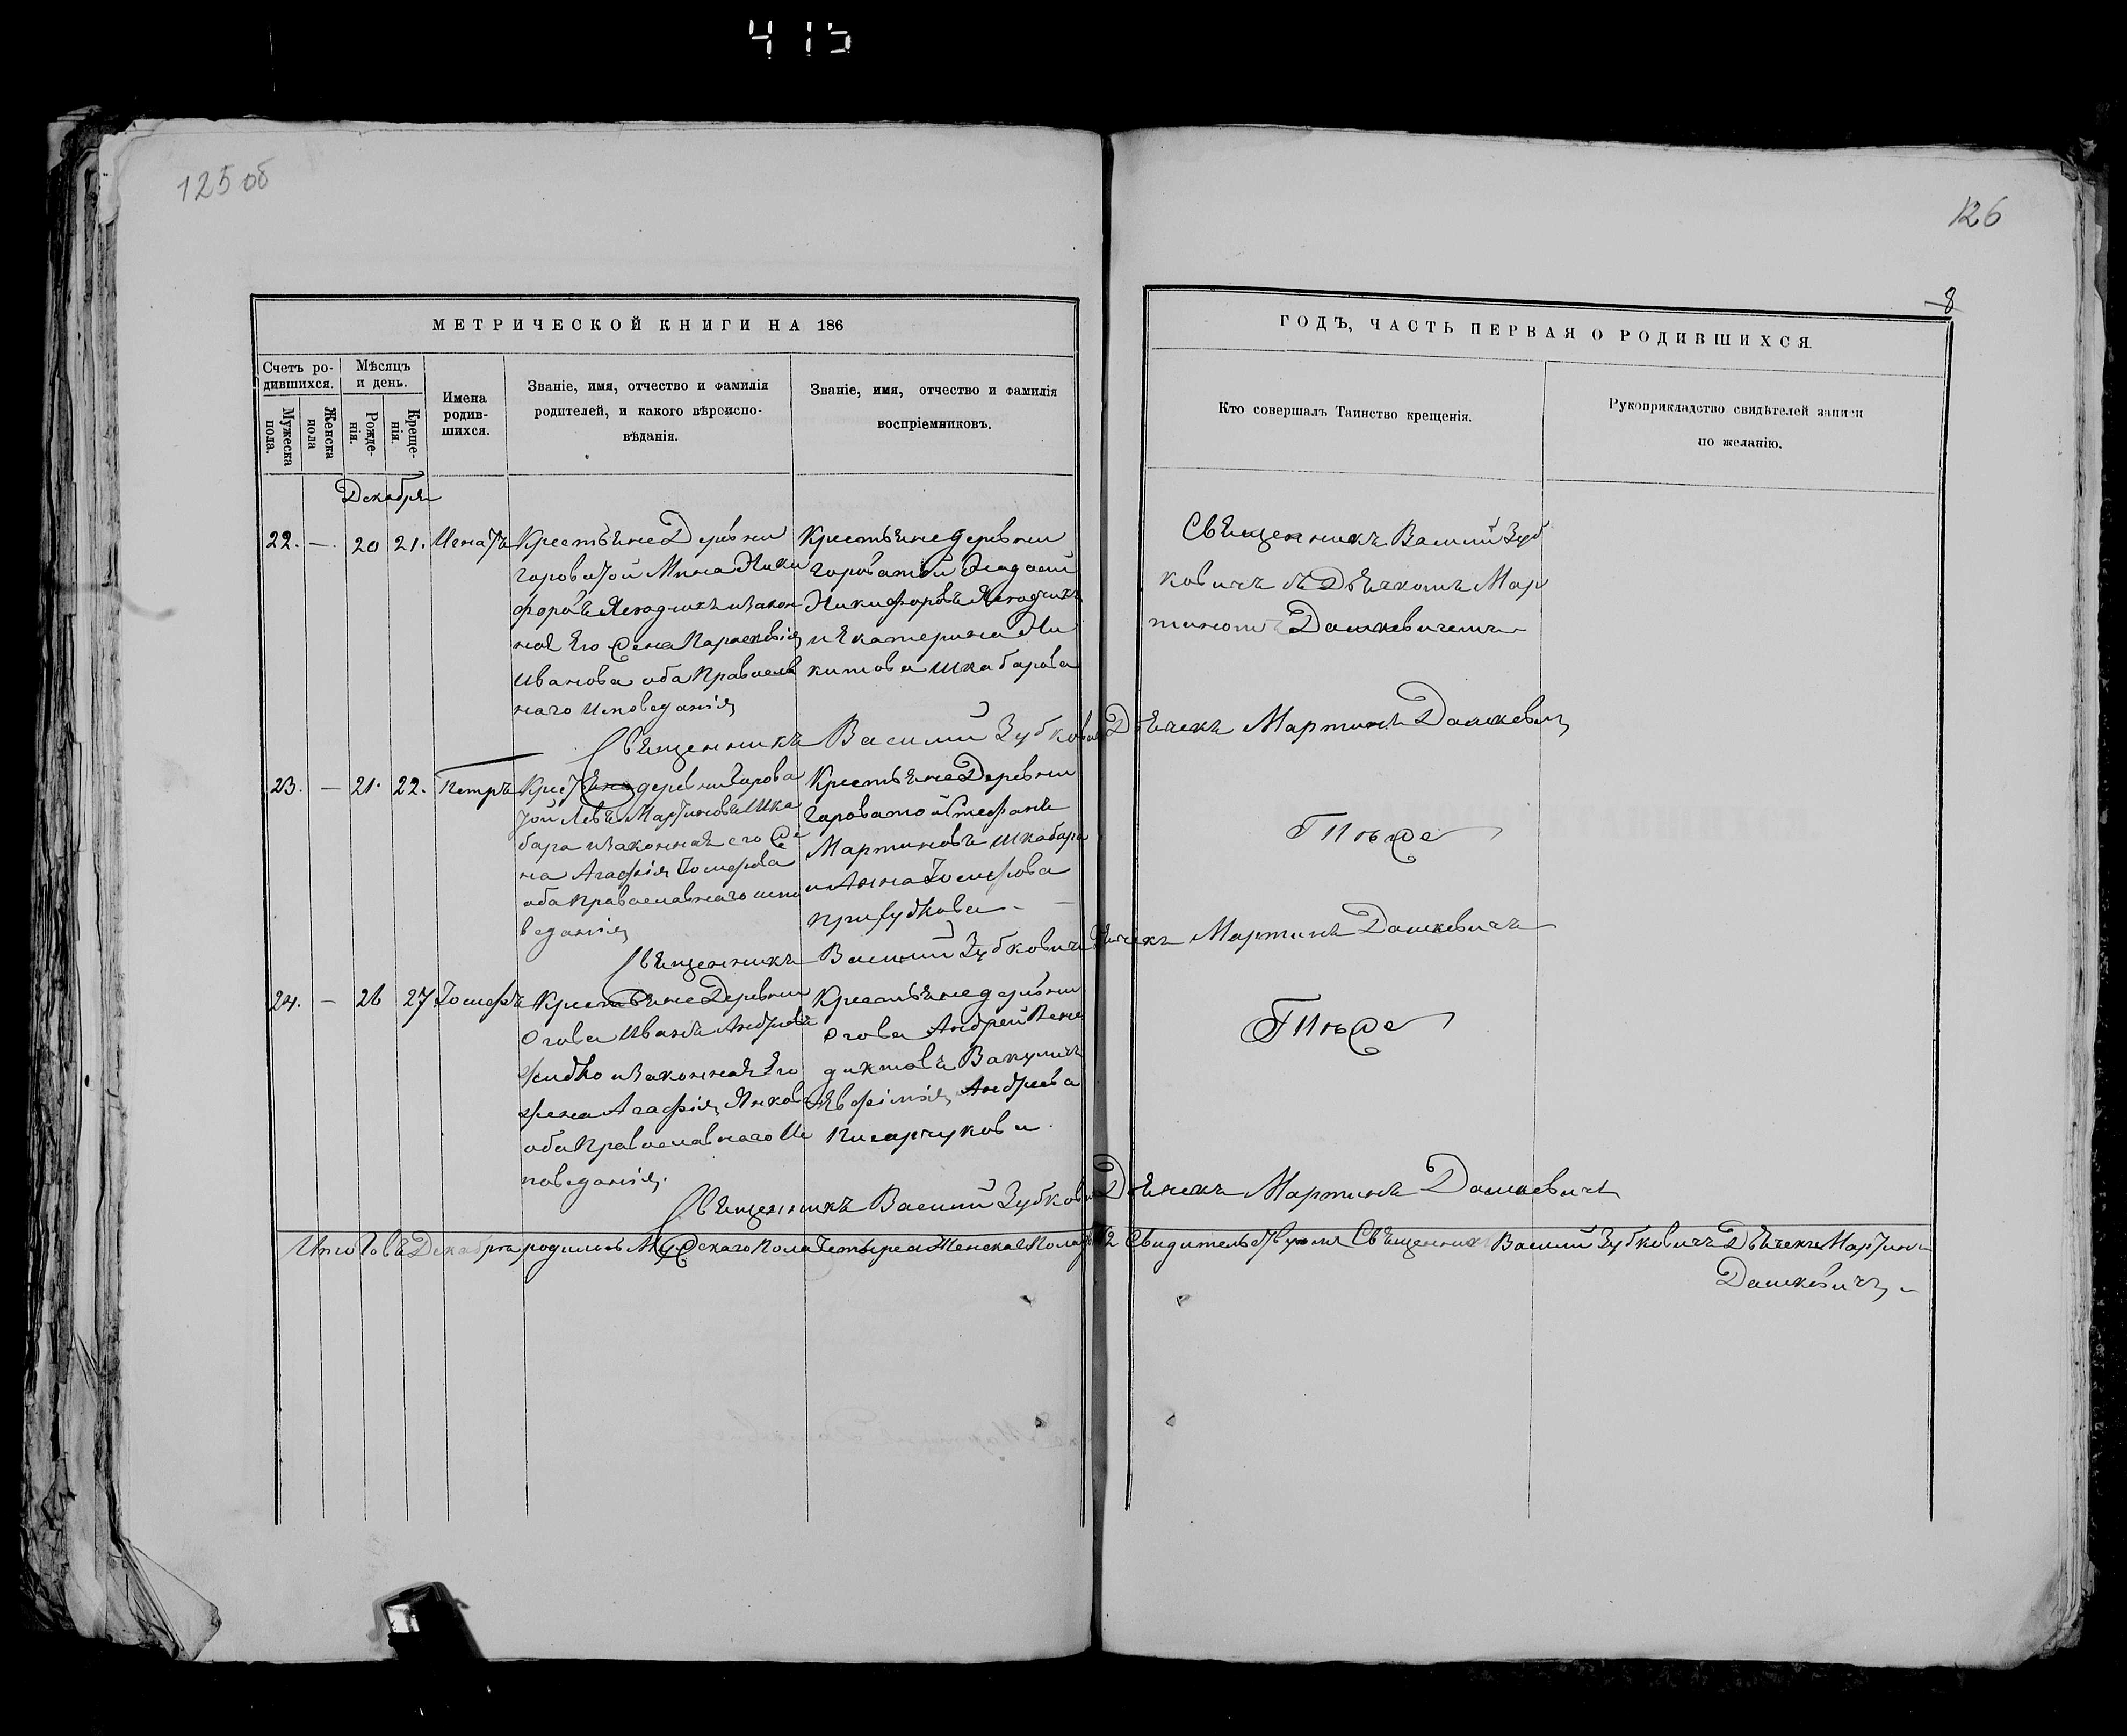 415
125 об
126
8
МЕТРИЧЕСКОЙ КНИГИ НА 186
ГОДЪ, ЧАСТЬ ПЕРВАЯ О РОДИВШИХСЯ.
Счетъ ро-
дившихся.
Мужеска
пола.
Женска
пола
Мѣсяцъ
и день.
Рожде-
нія.
Креще-
нія.
Имена
родив-
шихся.
Званіе, имя, отчество и фамилія
родителей, и какого вѣроиспо-
вѣданія.
Званіе, имя, отчество и фамилія
воспріемниковъ.
Кто совершалъ Таинство крещенія.
Рукоприкладство свидѣтелей записи
по желанію.
Декабря
22. — 20 21. Игнатъ
Крестьяне Деревни
Гороватой Мина Ники
форовъ и закон
ная Его жена
Иванова оба Правосл
наго исповеданія
Крестьяне деревни
Горватой
Никифоровъ
и Екатерина Ни
китова Шкабарова
Священникъ Василий Зуб
ковичъ съ Дьячкомъ Мар
тиномъ Дашкевичемъ
Священникъ Василий Зубкович Дьячекъ Мартинъ Дашкевич
23. — 21. 22. Петръ
деревни Горова
той Левъ Мартиновъ Шка
бара и законная его же
на Агафія Іосифова
оба Православнаго испо
веданія
Крестьяне Деревни
Горватой Стефанъ
Мартиновъ Шкабара
и Анна Іосифова
Тиже
Священникъ Василий Зубкович Дьячекъ Мартинъ Дашкевичъ
24. — 26 27 Іосифъ
Крестьяне Деревни
Огова Иванъ Андреевъ
Жидко и законная Его
жена Агафія Янкова
оба Православнаго Ис
поведанія.
Крестьяне деревни
Огова Андрей Вене
диктовъ Вакулич
Евфімія Андреева
Писарчукова
Тиже
Священникъ Василий Зубкович Дьячекъ Мартинъ Дашкевичъ
Итого въ Декабря родилось Мужескаго Пола Четыре а Женска Пола 2 Свидительствуюмъ Священник Василий Зубковичъ Дьячекъ Мартинъ
Дашкевичъ